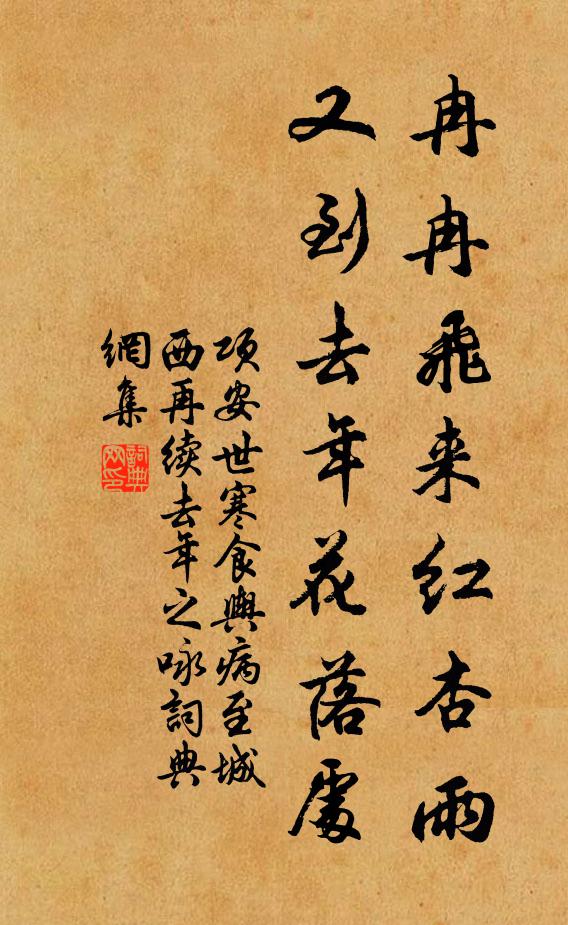 冉冉飛来红杏雨
又到去年花落處
项安世寒食舆病至城
西再续去年之咏詞典
網集
詞典網印